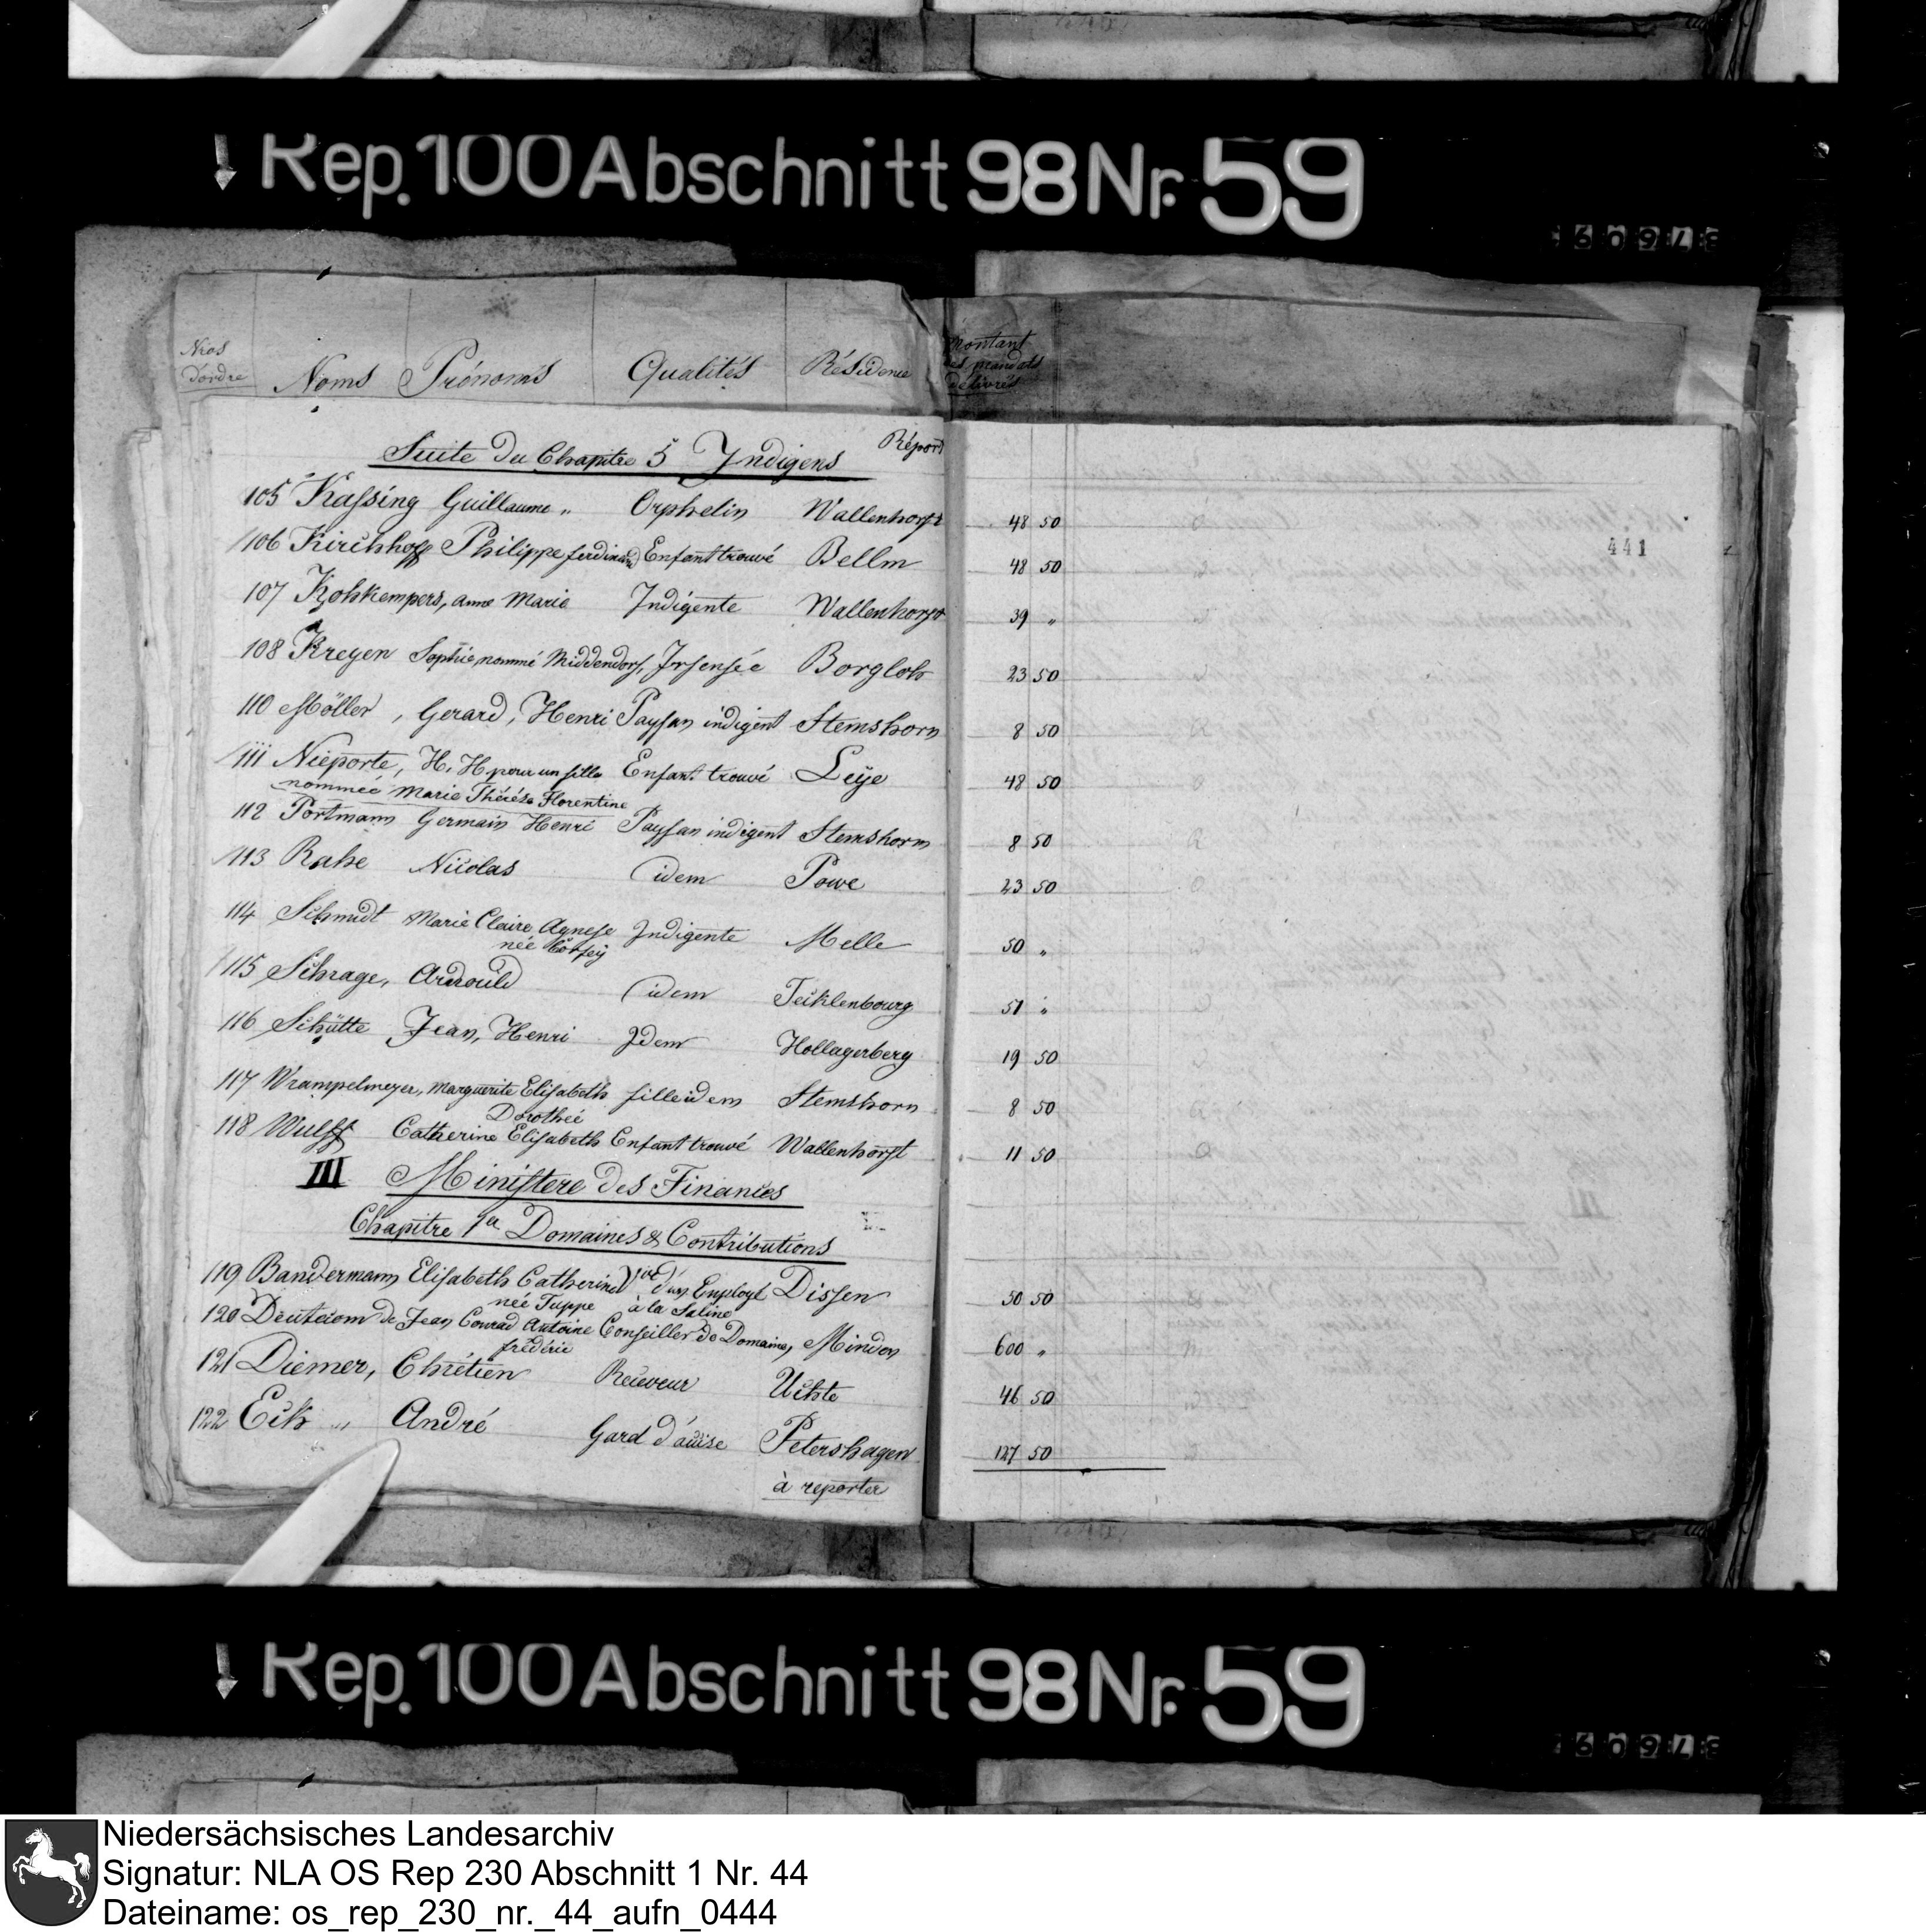 Rep. 100 Abschnitt 98 Nr. 59
Nros d'ordre Noms Prénoms Qualités Résidence Montant des mandats délivrés
Report
Suite du Chapitre 5 Indigens
105 Kassing Guillaume " Orphelin Wallenhorst 48 50
441
106 Kirchhoff Philippe ferdinand Enfant trouvé Bellm 48 50
107 Kohkempers, anne Marie Indigente Wallenhorst 39 "
108 Kreyen Sophie nommé Middendorf, Insensée Borgloh 23 50
110 Möller, Gerard, Henri Paysan indigent Stemshorn 8 50
111 Nieporte, H. H. pour un fille Enfant trouvé Leye 48 50
nommée Marie Thérése Florentine
112 Portmann Germain Henri Paysan indigent Stemshorn 8 50
113 Rahe Nicolas idem Powe 23 50
114 Schmidt Marie Claire Agnese Indigente Melle 50 "
née
115 Schrage, Arnould idem Tecklenbourg 51 "
116 Schütte Jean, Henri Idem Hollagerberg 19 50
117 Wrampelmeyer, Marguerite Elisabeth fille idem Stemshorn 8 50
Dorothée
118 Wulff Catherine Elisabeth Enfant trouvé Wallenhorst 11 50
III Ministere des Finances
Chapitre 1er Domaines & Contributions
119 Bandermann Elisabeth Catherine d'un Employé Dissen 50 50
née Tuppe à la Saline
120 de Jean Conrad Antoine Conseiller de Domaines, Minden 600 "
fréderic
121 Diemer, Chrétien Receveur Uchte 46 50
122 Eck " André Gard Petershagen 127 50
à reporter
Rep. 100 Abschnitt 98 Nr. 59
Niedersächsisches Landesarchiv
Signatur: NLA OS Rep 230 Abschnitt 1 Nr. 44
Dateiname: os_rep_230_nr._44_aufn_0444